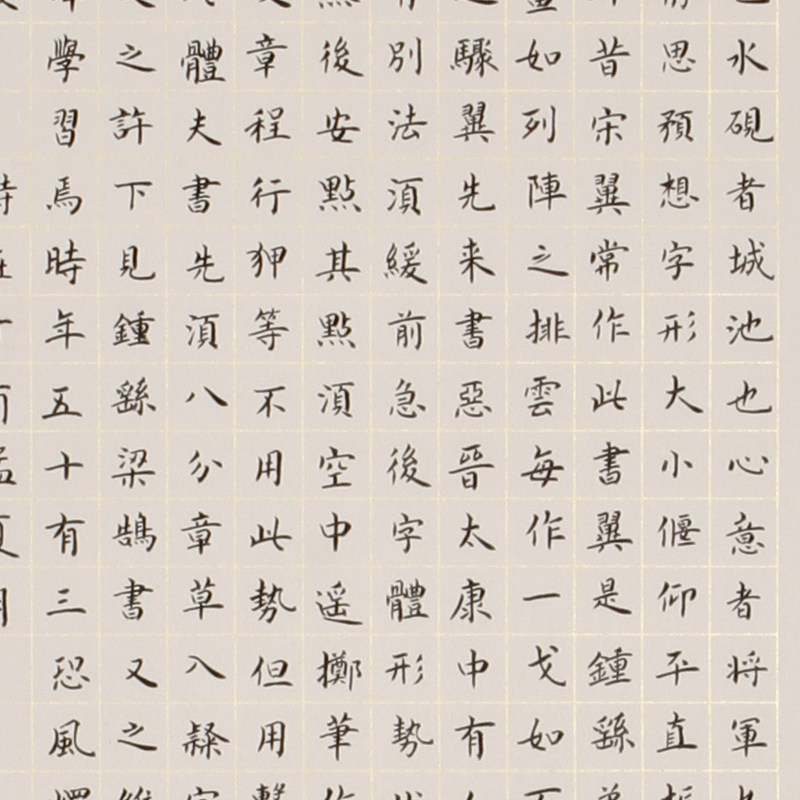 水硯者城池也心意者将軍
思預想字形大小偃仰平直
昔宋翼常作此書翼是鍾繇
如列陣之排雲每作一戈如
驟翼先来書惡晉太康中有
別法須緩前急後字體形勢
後安點其點須空中遥擲筆
章程行狎等不用此勢但用
體夫書先須八分章草入隸
之許下見鍾繇梁鵠書又之
學習焉時年五十有三恐風